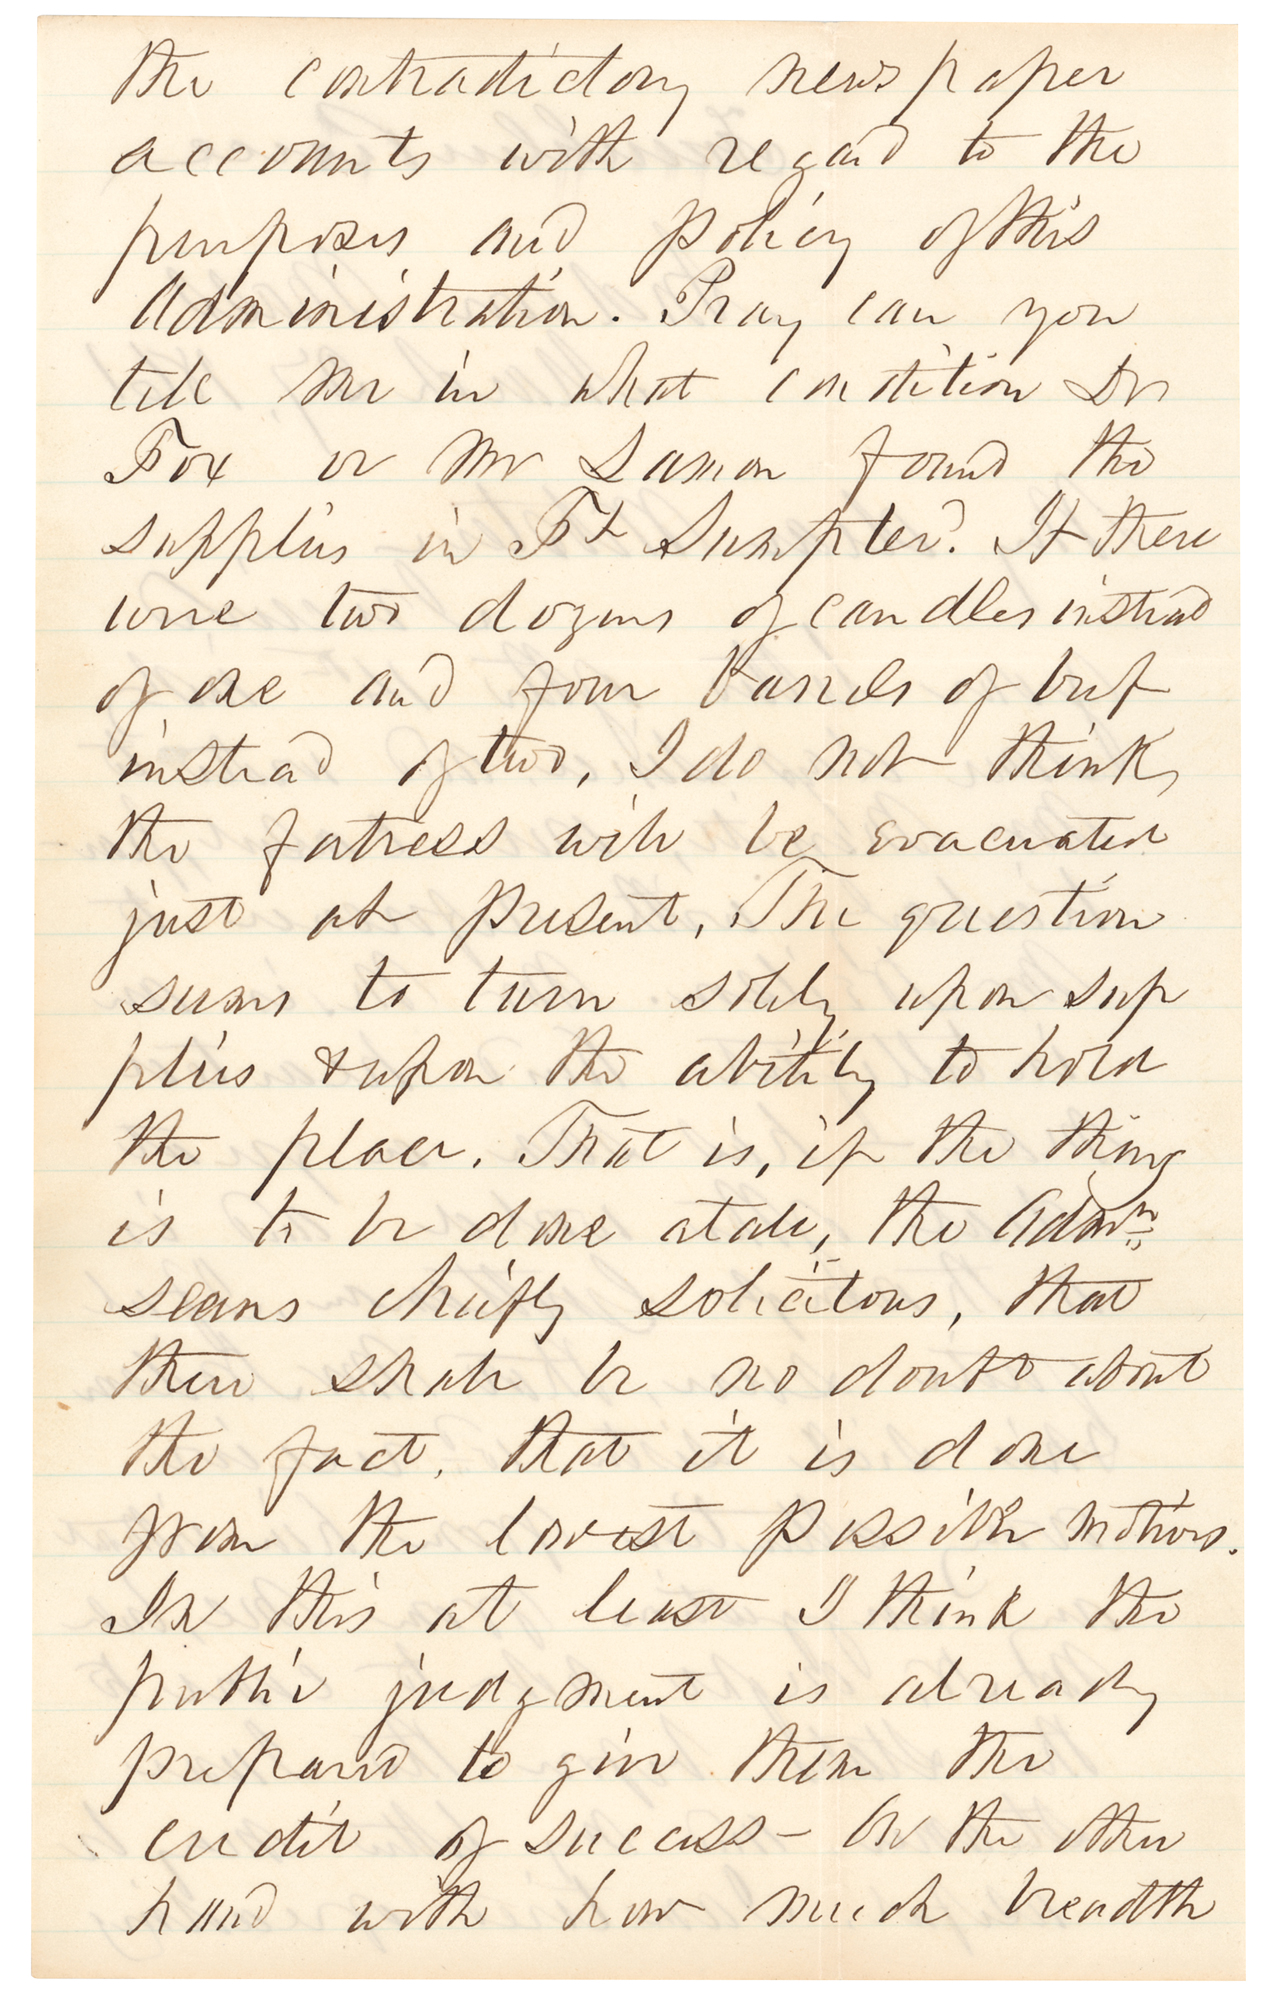 the contradictory news paper
accounts with regard to the
purposes and policy of this
Administration. Pray can you
tell me in what condition Dr
Fox or Mr Lamon found the
supplies in Ft Sumpter? If there
were two dozens of candles instead
of one and four barrels of beef
instead of two, I do not think
the fortress will be evacuated
just at present. The question
seems to turn solely upon sup
plies & upon the ability to hold
the place. That is, if the thing
is to be done at all, the Admn
seems chiefly solicitous, that
there shall be no doubt about
the fact, that it is done
from the lowest possible motives.
In this at least I think the
public judgment is already
prepared to give them the
credit of success – On the other
hand with how much breadth